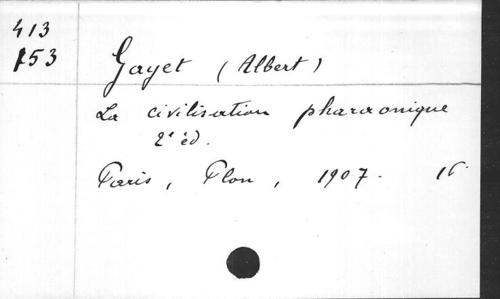 413
153
Gayet (Albert)
La civilisation pharaonique
2e éd.
Paris, Plon, 1907. 16